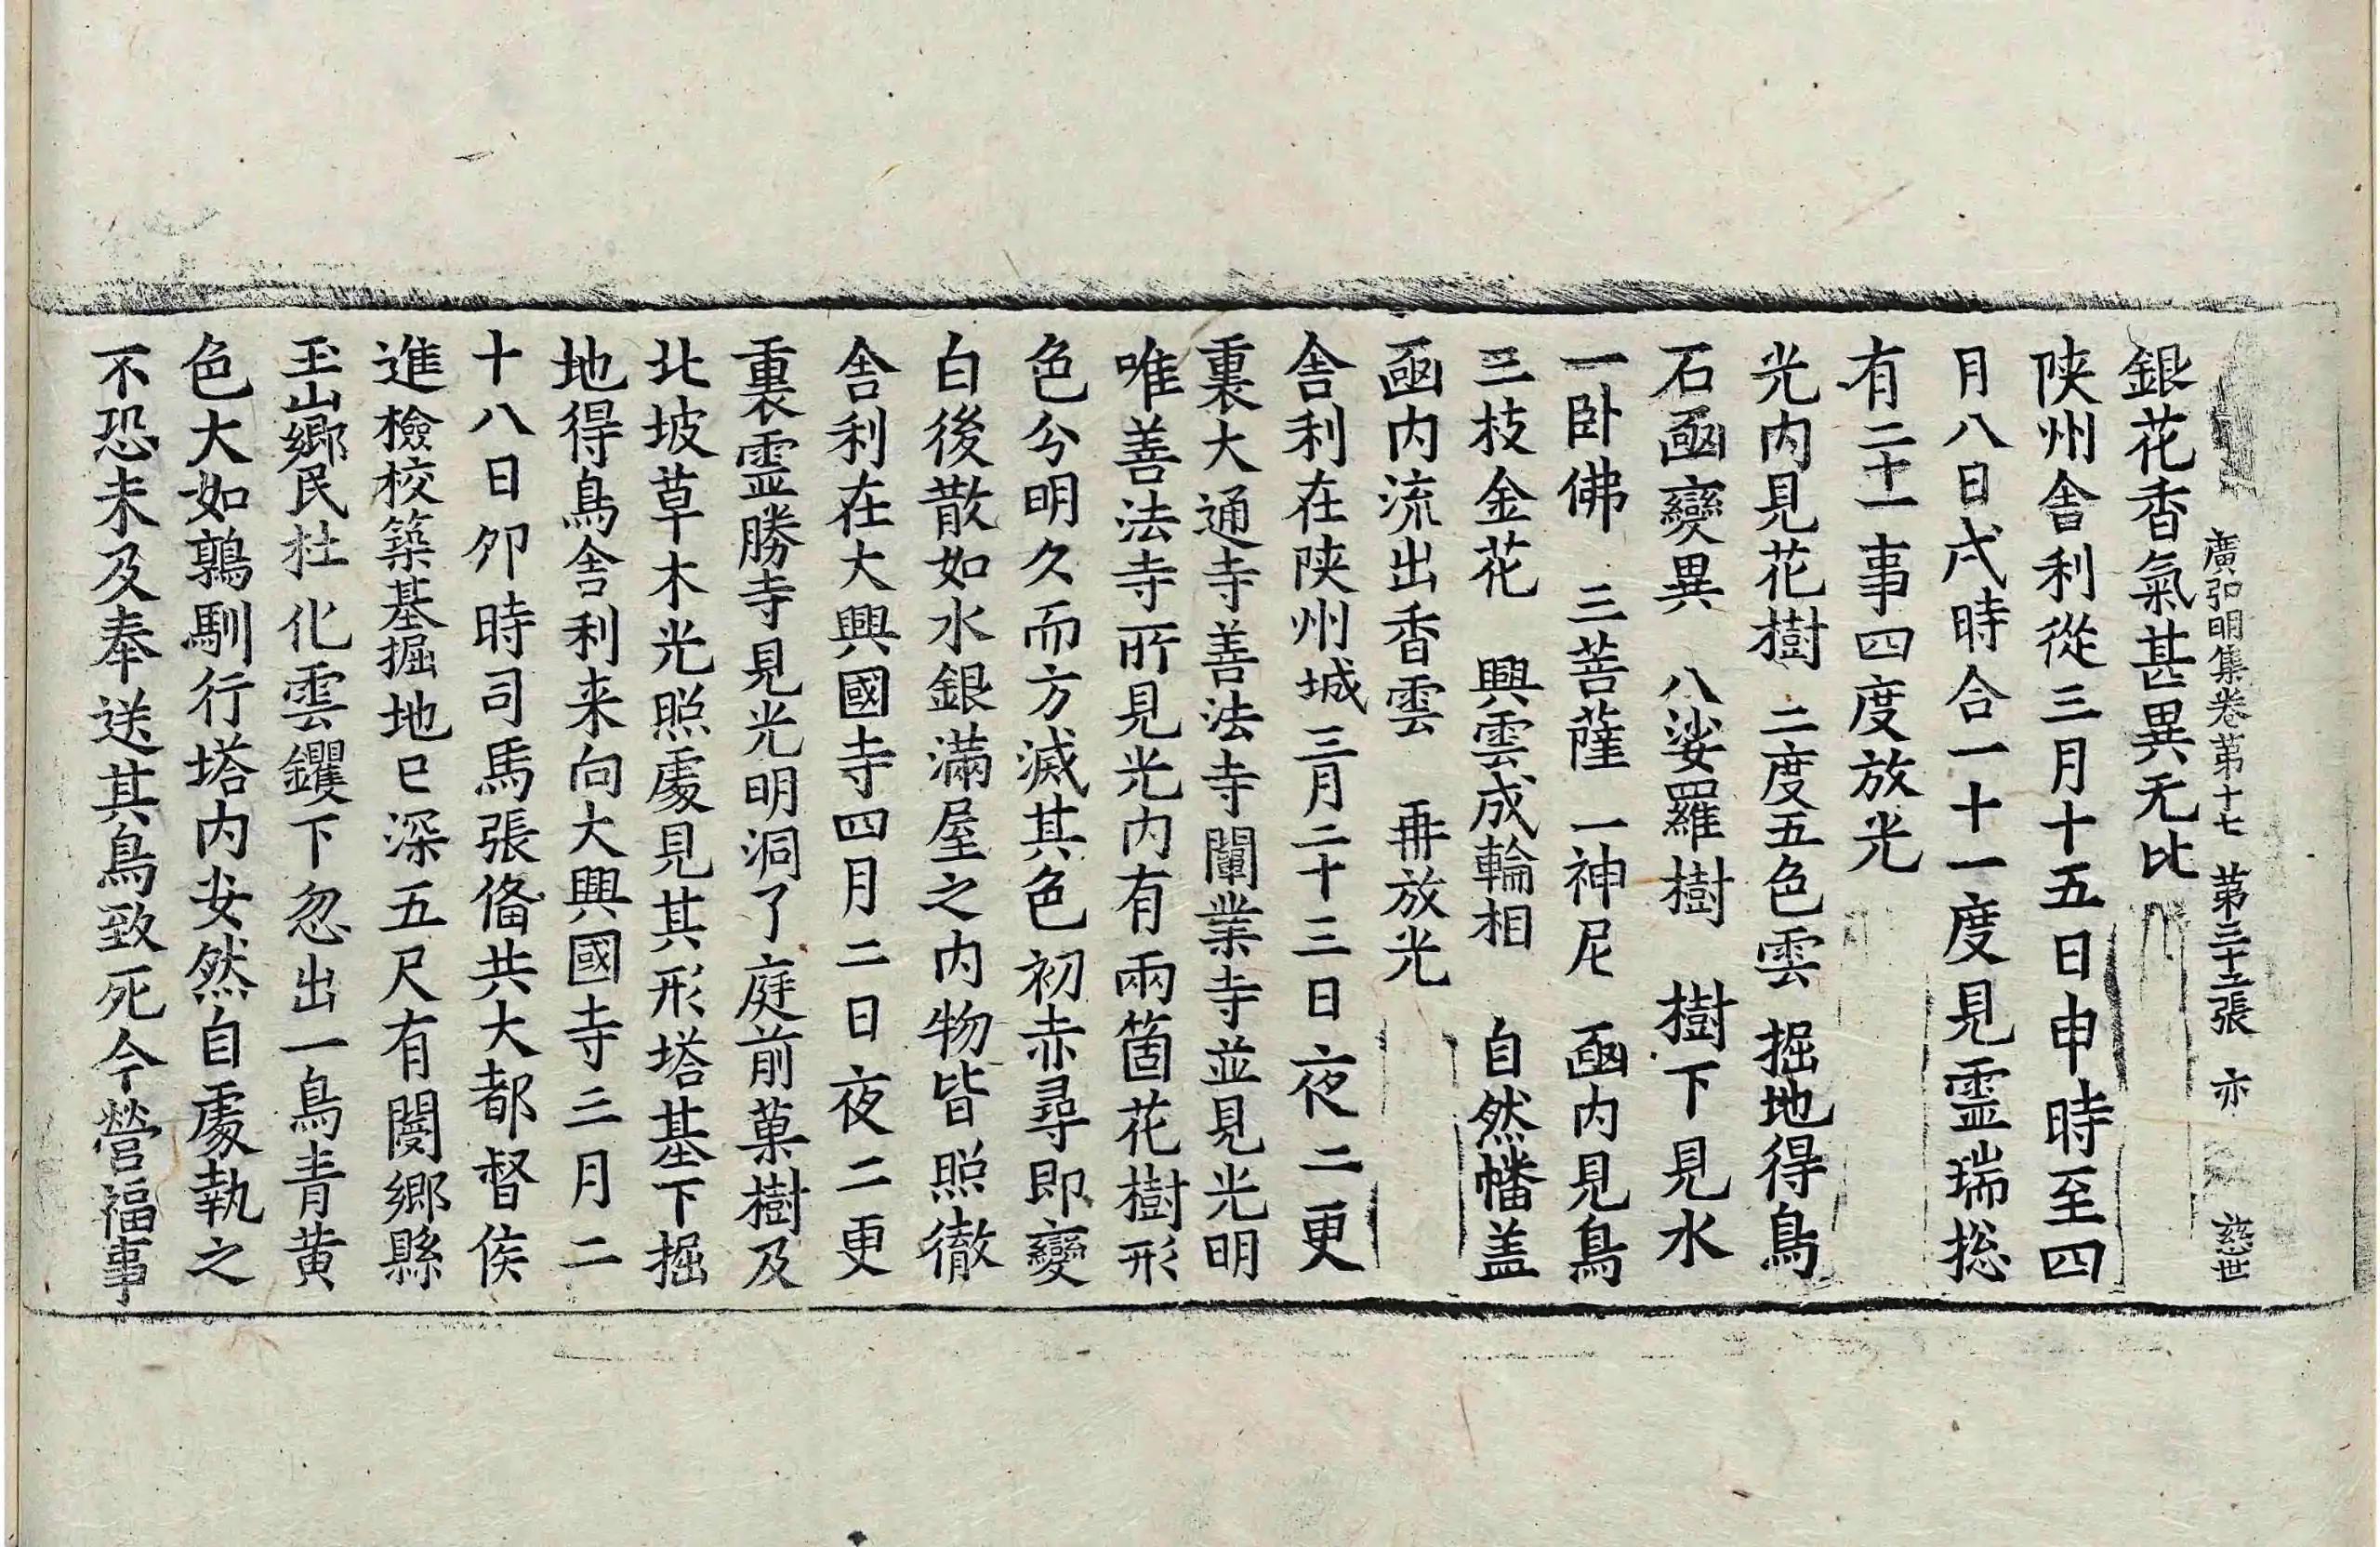 廣弘明集卷第十七 第三十五張 亦 慈世
銀花香氣甚異无比
陝州舍利從三月十五日申時至四
月八日戌時合一十一度見霊瑞捴
有二十一事四度放光
光内見花樹 二度五色雲 掘地得鳥
石凾變異 八娑羅樹 樹下見水
一卧佛 三菩薩 一神尼 凾内見鳥
三枝金花 興雲成輪相 自然幡盖
凾内流出香雲 再放光
舍利在陝州城三月二十三日夜二更
裏大通寺善法寺闡業寺並見光明
唯善法寺所見光内有兩箇花樹形
色分明久而方滅其色初赤尋即變
白後散如水銀滿屋之内物皆照徹
舍利在大興國寺四月二日夜二更
裏霊勝寺見光明洞了庭前菓樹及
北坡草木光照處見其形塔基下掘
地得鳥舍利来向大興國寺三月二
十八日夘時司馬張俻共大都督侯
進檢校築基掘地已深五尺有閿鄉縣
玉山鄉民杜化雲钁下忽出一鳥青黄
色大如鶉馴行塔内安然自處執之
不恐未及奉送其鳥致死今營福事